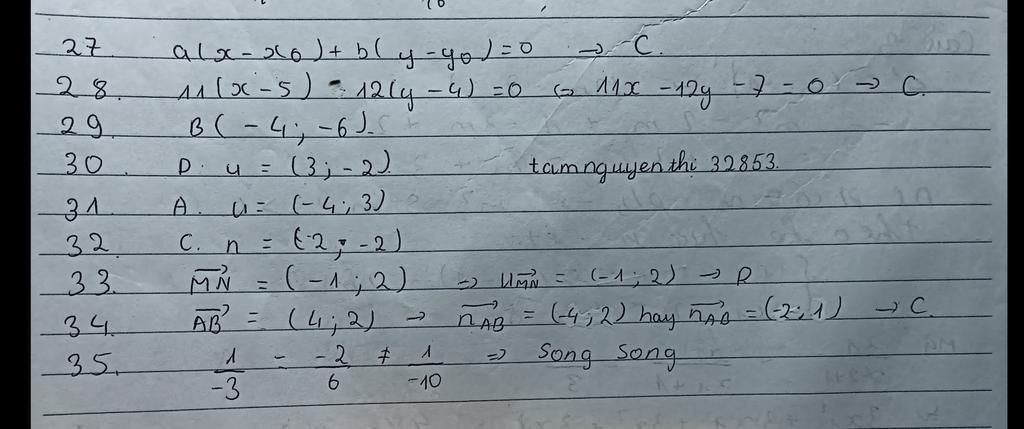 27. a(x-x0) + b(y-y0) = 0 → C.
28. 11(x-5) - 12(y-4) = 0 ⇔ 11x - 12y - 7 = 0 → C.
29. B(-4; -6).
30. D. u = (3; -2) tamnguyenthi 32853.
31. A. u = (-4; 3)
32. C. n = (-2; -2)
33. MN→ = (-1; 2) ⇒ uMN→ = (-1; 2) → D
34. AB→ = (4; 2) → nAB→ = (-4; 2) hay nAB→ = (-2; 1) → C.
35. 1/-3 = -2/6 ≠ 1/-10 ⇒ Song Song